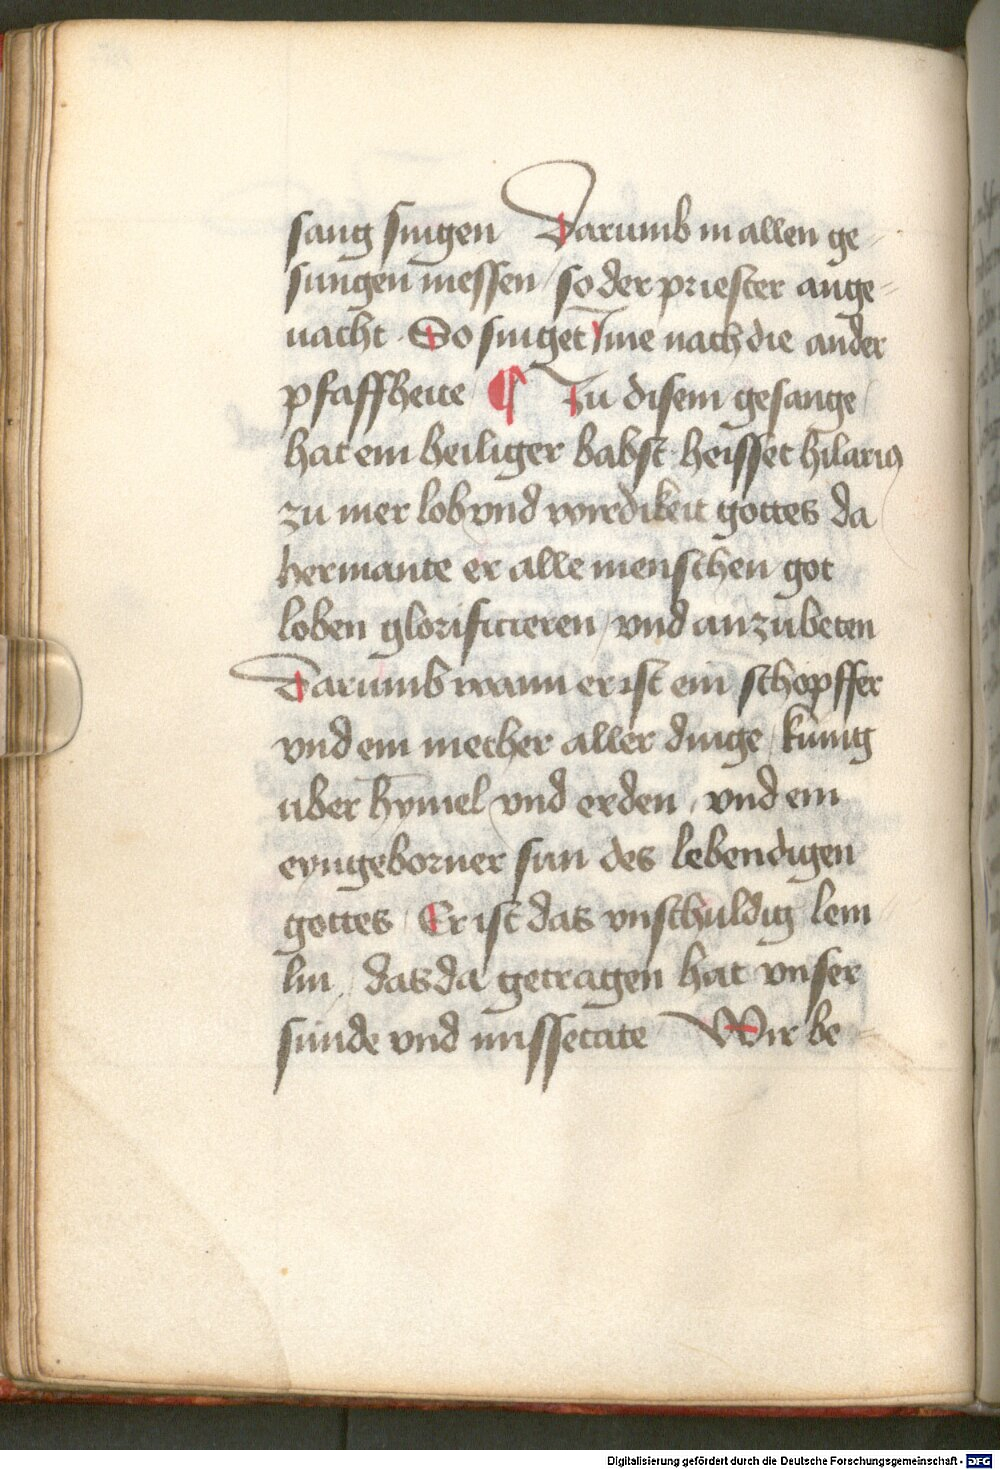 sang singen Darumb in allen ge-
sungen messen / so der priester ange-
nacht · So singet Jme nach die ander
pfaffheite ¶ Zu disem gesange /
hat ein heiliger babst · heisset hilariꝰ
zu mer lob vnd wirdikeit gottes da
hermante er alle menschen got
loben glorificieren / vnd anzubeten
Darumb wann er ist ein schopffer
vnd ein mecher aller dinge / kúnig
uber hymel / vnd erden / vnd ein
eyngeborner sun des lebendigen
gottes / Er ist das vnschuldig lem
lin / das da getragen hat vnser
súnde vnd missetate Wir be-
Digitalisierung gefördert durch die Deutsche Forschungsgemeinschaft - DFG